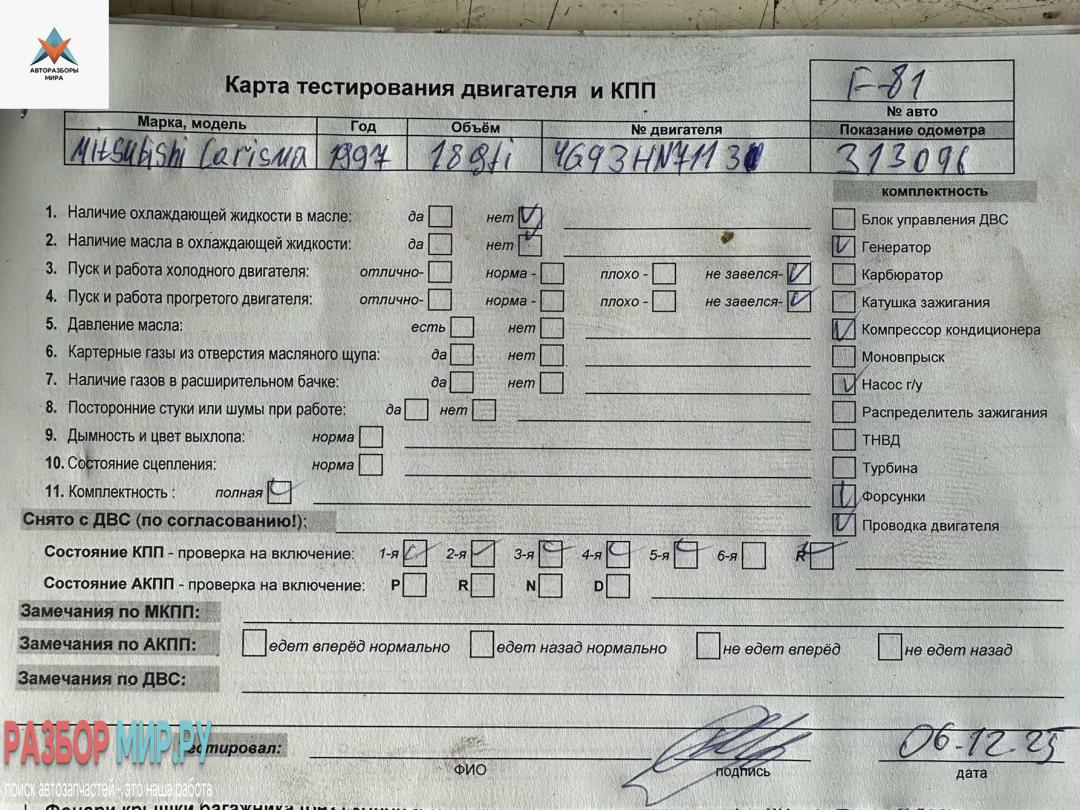 АВТОРАЗБОРЫ
МИРА
Карта тестирования двигателя и КПП
F-81
№ авто
Марка, модель Год Объём № двигателя Показание одометра
Mitsubishi Carisma 1997 1.8 gti 4G93HN7113 313096
комплектность
1. Наличие охлаждающей жидкости в масле: да нет
Блок управления ДВС
2. Наличие масла в охлаждающей жидкости: да нет
Генератор
3. Пуск и работа холодного двигателя: отлично- норма - плохо - не завелся-
Карбюратор
4. Пуск и работа прогретого двигателя: отлично- норма - плохо - не завелся-
Катушка зажигания
5. Давление масла: есть нет
Компрессор кондиционера
6. Картерные газы из отверстия масляного щупа: да нет
Моновпрыск
7. Наличие газов в расширительном бачке: да нет
Насос г/у
8. Посторонние стуки или шумы при работе: да нет
Распределитель зажигания
9. Дымность и цвет выхлопа: норма
ТНВД
10. Состояние сцепления: норма
Турбина
11. Комплектность : полная
Форсунки
Снято с ДВС (по согласованию!):
Проводка двигателя
Состояние КПП - проверка на включение: 1-я 2-я 3-я 4-я 5-я 6-я R
Состояние АКПП - проверка на включение: P R N D
Замечания по МКПП:
Замечания по АКПП: едет вперёд нормально едет назад нормально не едет вперёд не едет назад
Замечания по ДВС:
РАЗБОР МИР.РУ
Тестировал:
06.12.25
ФИО подпись дата
поиск автозапчастей - это наша работа
Фонари крышки багажника